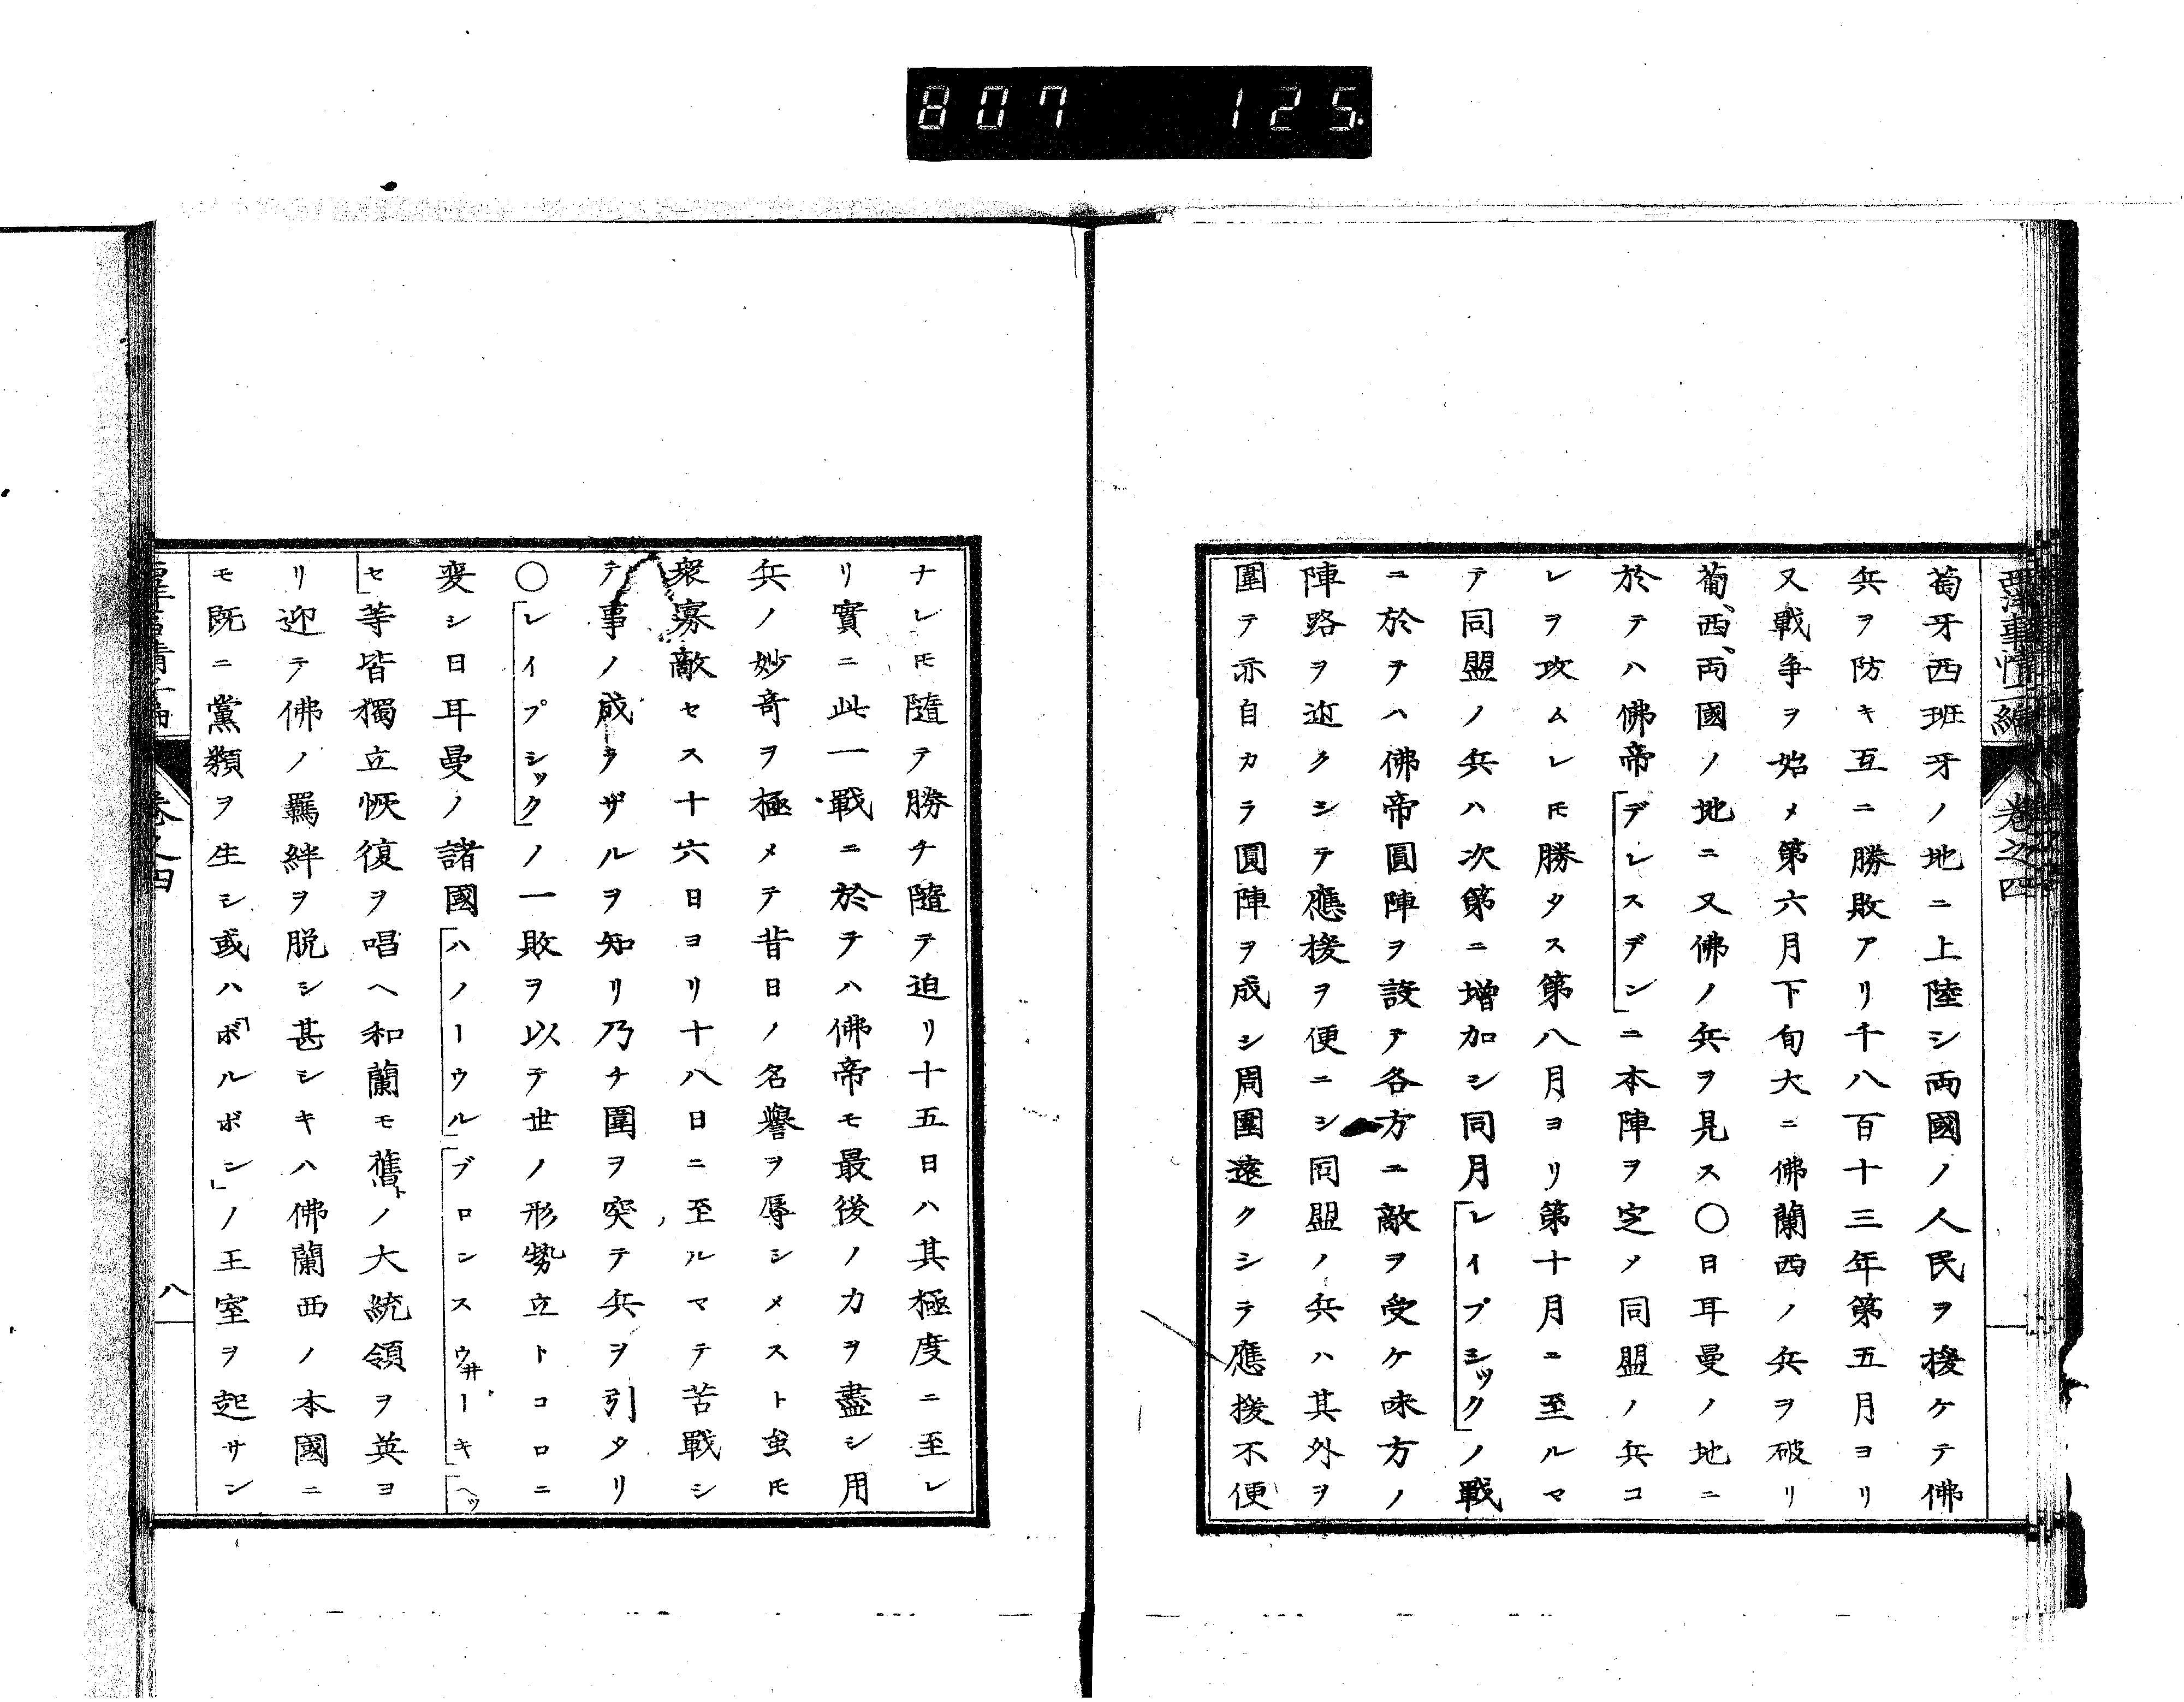 807 125.
西洋事情二編 卷之四
葡牙西班牙ノ地ニ上陸シ両國ノ人民ヲ援ケテ佛
兵ヲ防キ互ニ勝敗アリ千八百十三年第五月ヨリ
又戰爭ヲ始メ第六月下旬大ニ佛蘭西ノ兵ヲ破リ
葡、西、両國ノ地ニ又佛ノ兵ヲ見ス○日耳曼ノ地ニ
於テハ佛帝「デレスデン」ニ本陣ヲ定メ同盟ノ兵コ
レヲ攻ムレ𪜈勝タス第八月ヨリ第十月ニ至ルマ
テ同盟ノ兵ハ次第ニ增加シ同月「レイプシック」ノ戰
ニ於テハ佛帝圓陣ヲ設テ各方ニ敵ヲ受ケ味方ノ
陣路ヲ近クシテ應援ヲ便ニシ同盟ノ兵ハ其外ヲ
圍テ亦自カラ圓陣ヲ成シ周圍遠クシテ應援不便
ナレ𪜈隨テ勝チ隨テ迫リ十五日ハ其極度ニ至レ
リ實ニ此一戰ニ於テハ佛帝モ最後ノ力ヲ盡シ用
兵ノ妙竒ヲ極メテ昔日ノ名譽ヲ辱シメスト虽𪜈
衆寡敵セス十六日ヨリ十八日ニ至ルマテ苦戰シ
テ事ノ成ラザルヲ知リ乃チ圍ヲ突テ兵ヲ引タリ
○「レイプシック」ノ一敗ヲ以テ世ノ形勢立トコロニ
変シ日耳曼ノ諸國「ハノーウル」「ブロンスウ井ーキ」「ヘッ
セ」等皆獨立恢復ヲ唱ヘ和蘭モ舊トノ大統領ヲ英ヨ
リ迎テ佛ノ羈絆ヲ脱シ甚シキハ佛蘭西ノ本國ニ
モ既ニ黨類ヲ生シ或ハ「ボルボン」ノ王室ヲ起サン
卷之四
八